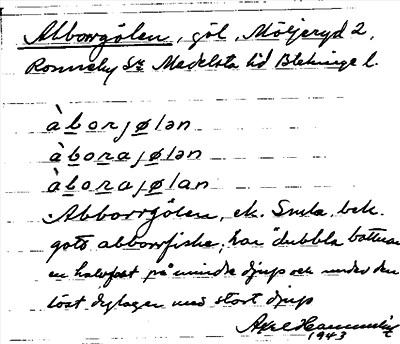 Abborrgölen, göl, Möljeryd 2,
Ronneby Sn Medelsta hd Blekinge l.
àborjølən
àborajølən
àborajølan
Abborrgölen, ek. Småa, bek.
gott abborrfiske, har dubbla bottnar
en halvfast på mindre djup och under den
löst dylager med stort djup
Axel
1943